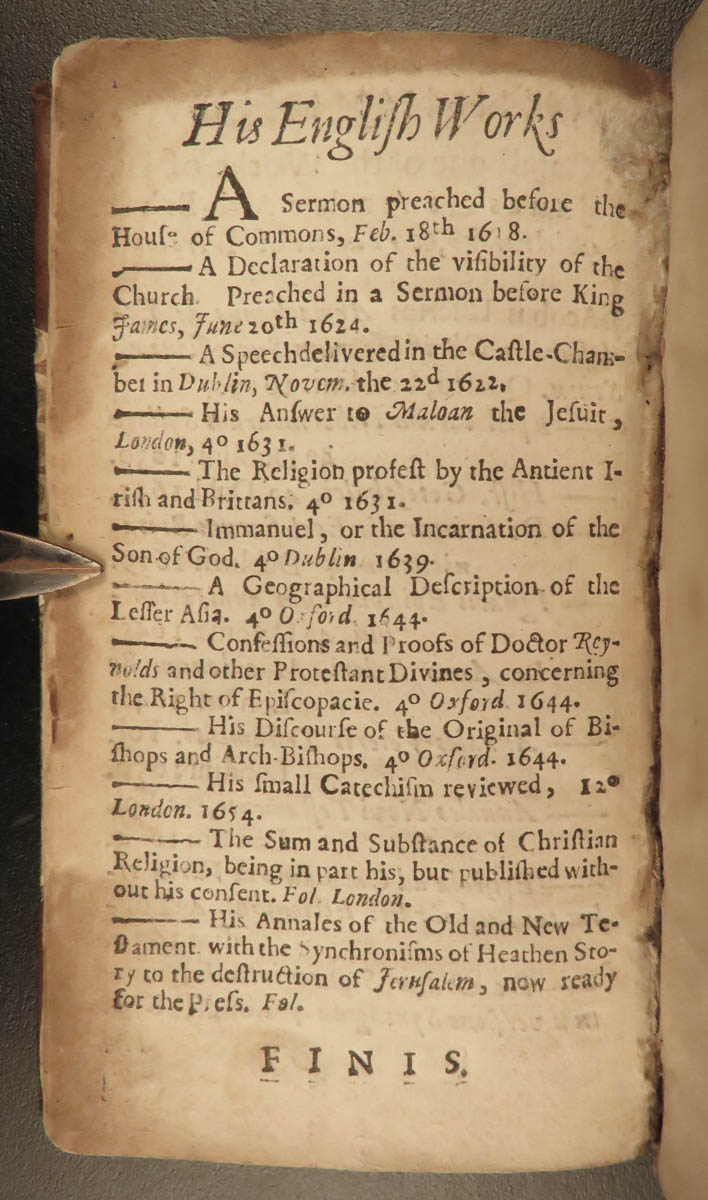 His Engliſh Works
—— A Sermon preached before the
Houſe of Commons, Feb. 18th 1618.
—— A Declaration of the viſibility of the
Church. Preached in a Sermon before King
James, June 20th 1624.
—— A Speech delivered in the Caſtle-Cham-
ber in Dublin, Novem. the 22d 1622.
—— His Anſwer to Maloan the Jeſuit,
London, 4º 1631.
—— The Religion profeſt by the Antient I-
riſh and Brittans. 4º 1631.
—— Immanuel, or the Incarnation of the
Son of God. 4º Dublin 1639.
—— A Geographical Deſcription of the
Leſſer Aſia. 4º Oxford 1644.
—— Confeſſions and Proofs of Doctor Rey-
nolds and other Proteſtant Divines, concerning
the Right of Epiſcopacie. 4º Oxford 1644.
—— His Diſcourſe of the Original of Bi-
ſhops and Arch-Biſhops. 4º Oxford. 1644.
—— His ſmall Catechiſm reviewed, 12º
London. 1654.
—— The Sum and Subſtance of Chriſtian
Religion, being in part his, but publiſhed with-
out his conſent. Fol. London.
—— His Annales of the Old and New Te-
ſtament. with the Synchroniſms of Heathen Sto-
ry to the deſtruction of Jeruſalem, now ready
for the Preſs. Fol.
FINIS.